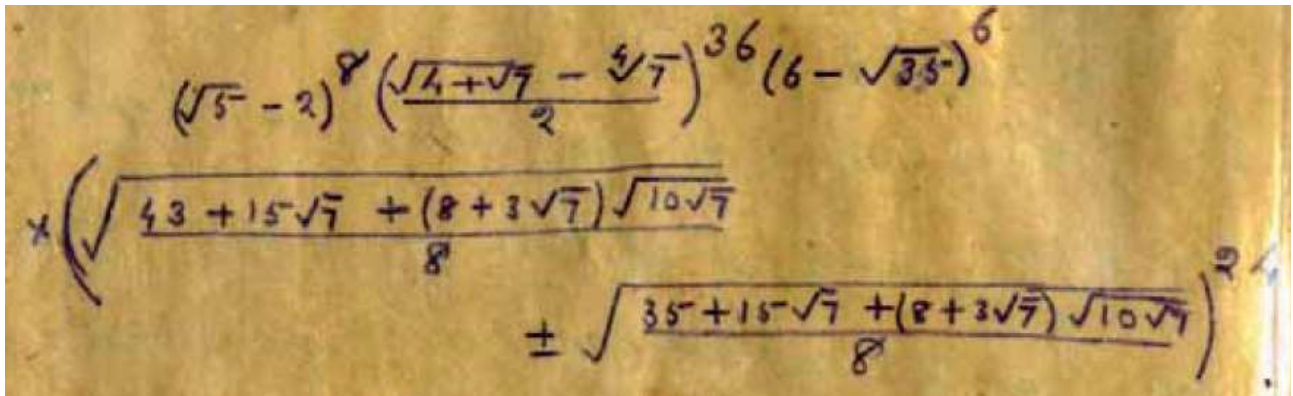 (√5 - 2)^8 ((√(4+√7) - ∜7)/2)^36 (6 - √35)^6
× (√((43 + 15√7 + (8 + 3√7)√(10√7))/8)
± √((35 + 15√7 + (8 + 3√7)√(10√7))/8))^2